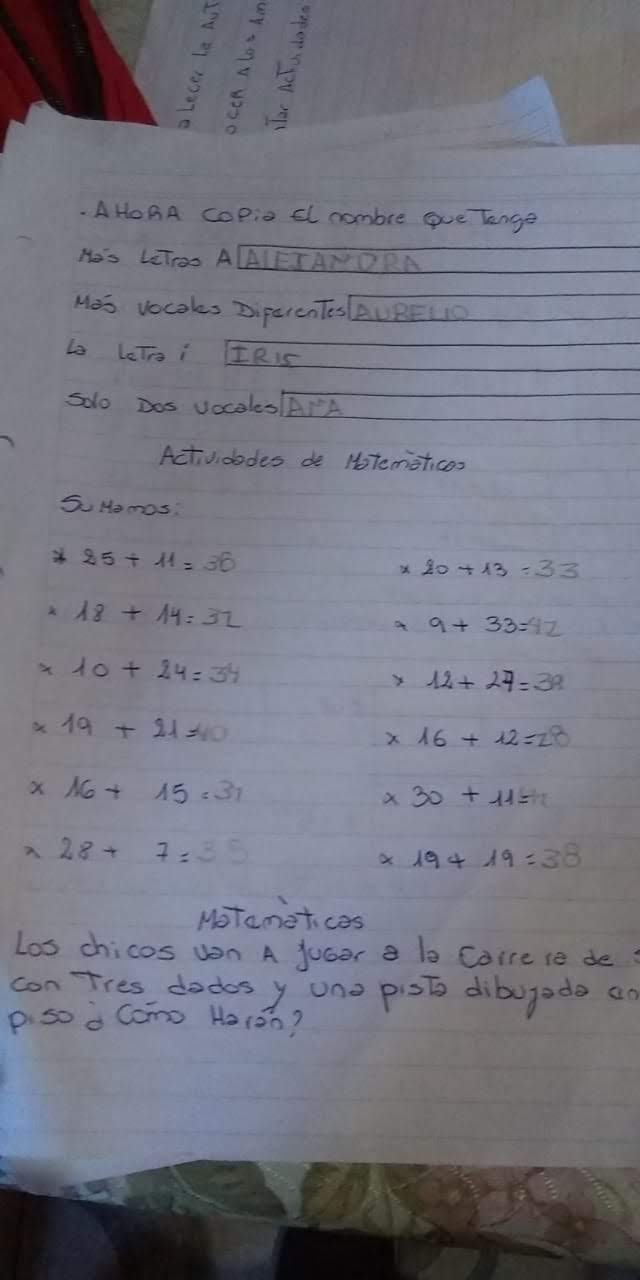 a Lecer la Aut
ocer A los Am
itar Actividades
. AHORA COPia El nombre Que Tenga
Más LeTras A ALEJANDRA
Más vocales DiferenTes AURELIO
La LeTra i IRIS
Solo Dos vocales ANA
ActividaDes de MaTemàticas
SuMamos:
* 25 + 11 = 36 x 20 + 13 = 33
x 18 + 14 = 32 x 9 + 33 = 42
x 10 + 24 = 34 x 12 + 27 = 39
x 19 + 21 = 40 x 16 + 12 = 28
x 16 + 15 = 31 x 30 + 11 = 41
x 28 + 7 = 35 x 19 + 19 = 38
MaTemàticas
Los chicos van A jugar a la Carrera de
con Tres dados y una pista dibujada en
piso ¿ Cómo Harán?